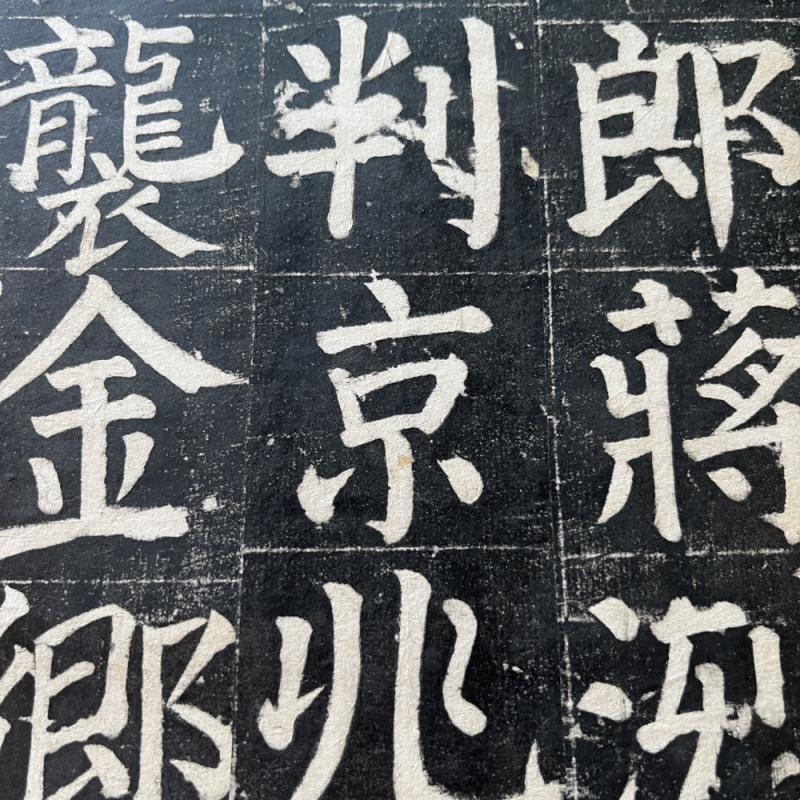 郎蔣洌
判京兆
襲金鄉